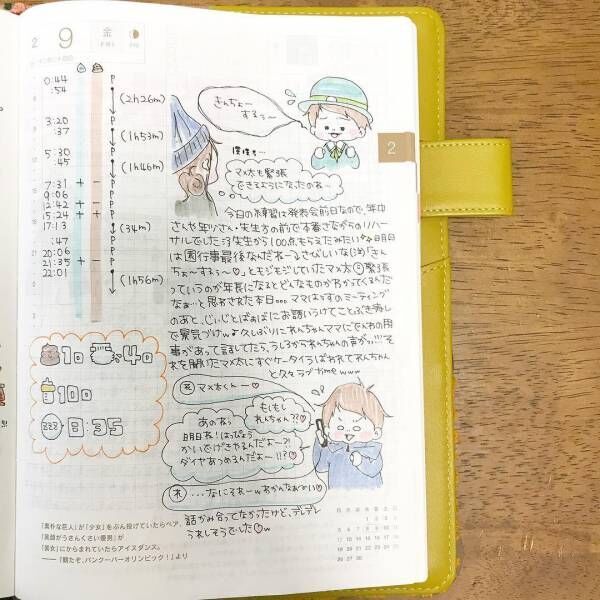 2
9
金
FRI
0:44
:54
3:20
:37
5:30
:45
7:31 + -
9:06
12:42 + -
15:24 + +
17:13
:47
20:06
21:35 + -
22:01
P
(2h26m)
P
(1h53m)
P
(1h46m)
P
(34m)
P
(1h56m)
きんちょー
するぅ〜
2
マメ太も緊張
できるようになったのねー
今日の練習は発表会前日なので、年中
さんや年少さん・先生方の前で本番さながらのリハー
サルでした
先生から100点もらえたみたい
明日
は園行事最後なんだねーさくんしいな
「きん
ちょ〜するぅ〜♡」ともじもじしていたマメ太
緊張
っていうのが年長になるとどんなものかわかってくるんだ
なぁ…と思わされた本日。。。ママはすのミーティング
のあと、じぃじとばぁばにお誘いうけてことぶき寿し
で景気づけw
久しぶりにれんちゃんママにでんわの用
事があって話してたら、うしろかられんちゃんの声がっ!!!
そ
れを聞いたマメ太にすぐケータイうばわれてれんちゃん
と久々ラブtime www
1０
4０
100
8:35
マメ太くん〜♡
もしもし
れんちゃん??♡
あのねっ
明日ね!はっぴょう
かいでげきやるんだよ〜?!
ダイヤあつめるんだよ〜!!?
れ …なにそれーwわかんなぁーい♡
話かみ合ってなかったけど、デレデレ
うれしそうでした♡w
「素朴な巨人」が「少女」をぶん投げていたらペア、
「笑顔がうさんくさい優男」が
「美女」にからまれていたらアイスダンス。
――「朝だぞ、バンクーバーオリンピック！」より